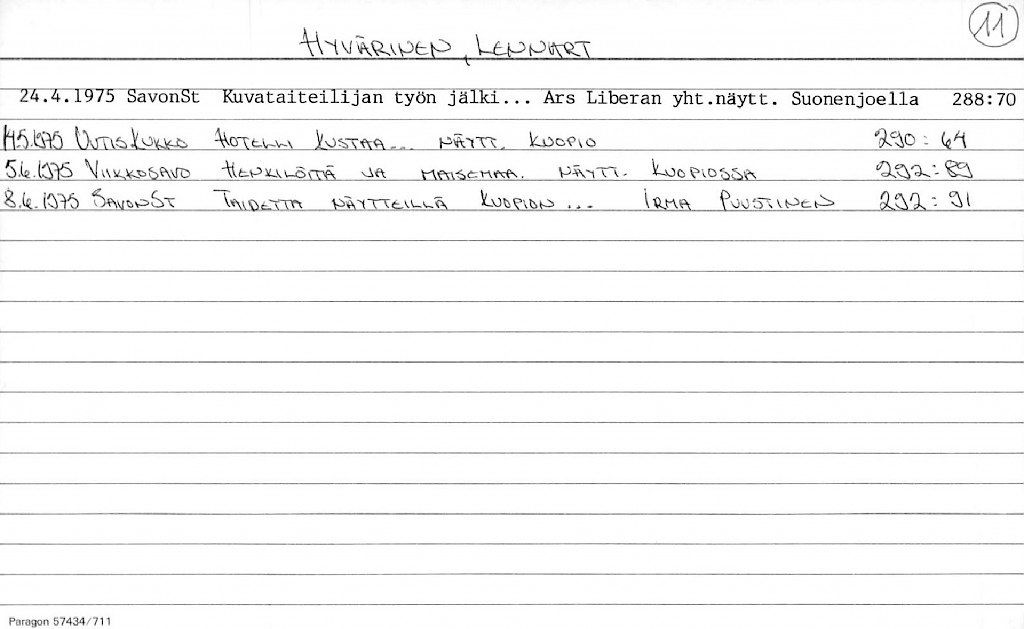 11
HYVÄRINEN, LENNART
24.4.1975 SavonSt Kuvataiteilijan työn jälki... Ars Liberan yht.näytt. Suonenjoella 288:70
14.5.1975 UUTISKUKKO HOTELLI KUSTAA... NÄYTT. KUOPIO 290:64
5.6.1975 VIIKKOSAVO HENKILÖITÄ JA MAISEMAA. NÄYTT. KUOPIOSSA 292:89
8.6.1975 SAVONST TAIDETTA NÄYTTEILLÄ KUOPION... IRMA PUUSTINEN 292:91
Paragon 57434/711